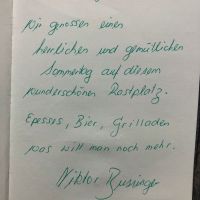 Wir genossen einen
herrlichen und gemütlichen
Sommertag auf diesem
wunderschönen Rastplatz.
Epesses, Bier, Grilladen
was will man noch mehr.
Viktor